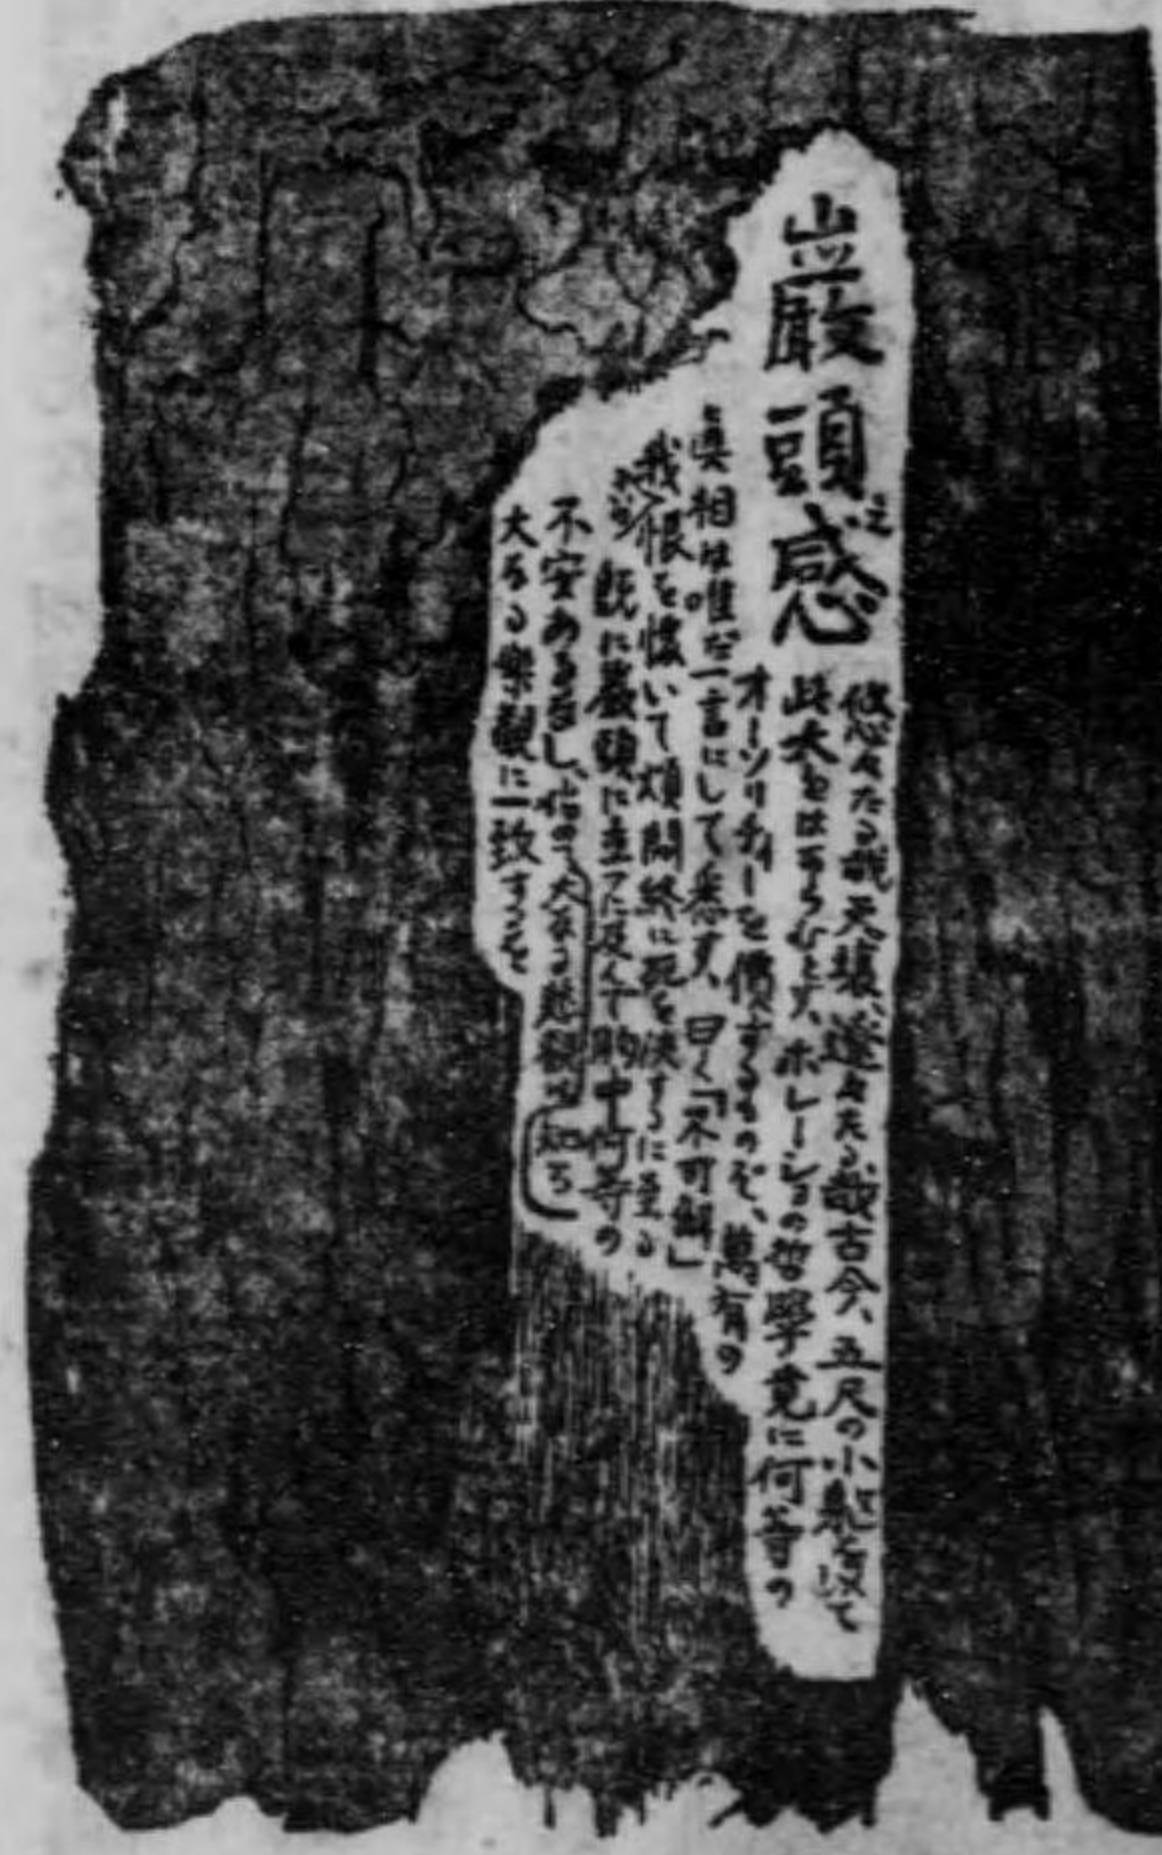 巌頭之感
悠々たる哉天壤、遼々たる哉古今、五尺の小躯を以て
此大をはからむとす、ホレーショの哲學竟に何等の
オーソリチィーを價するものぞ、萬有の
真相は唯だ一言にして悉す、曰く「不可解」
我この恨を懐いて煩悶終に死を決するに至る
既に巌頭に立つに及んで胸中何等の
不安あるなし、始めて知る大なる悲觀は
大なる樂觀に一致するを